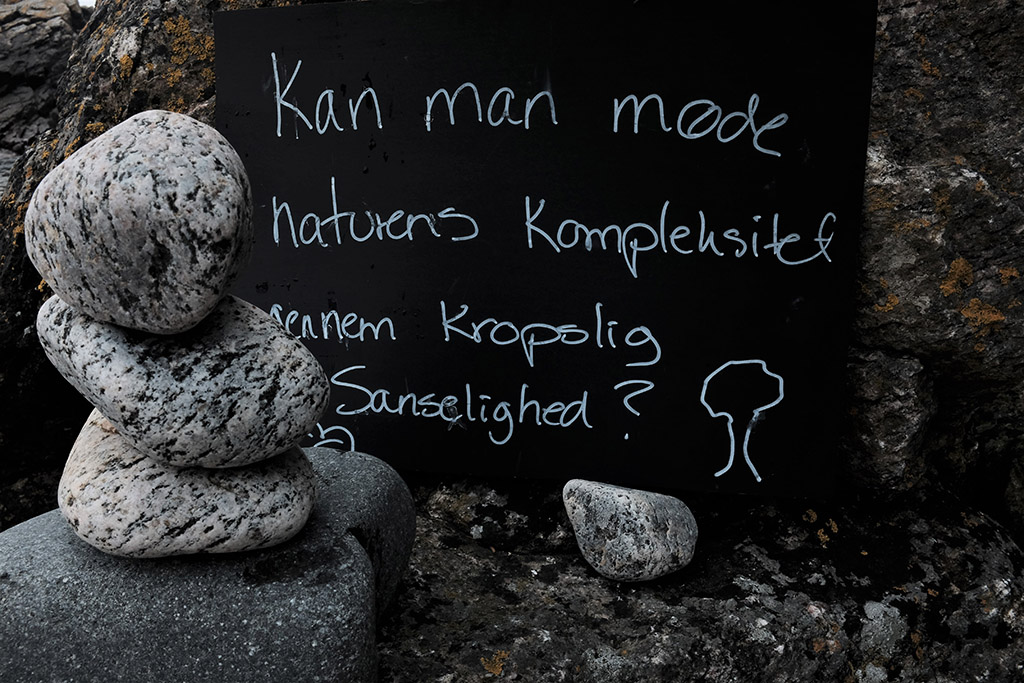 Kan man møde
naturens Kompleksitet
gennem Kropslig
Sanselighed ?